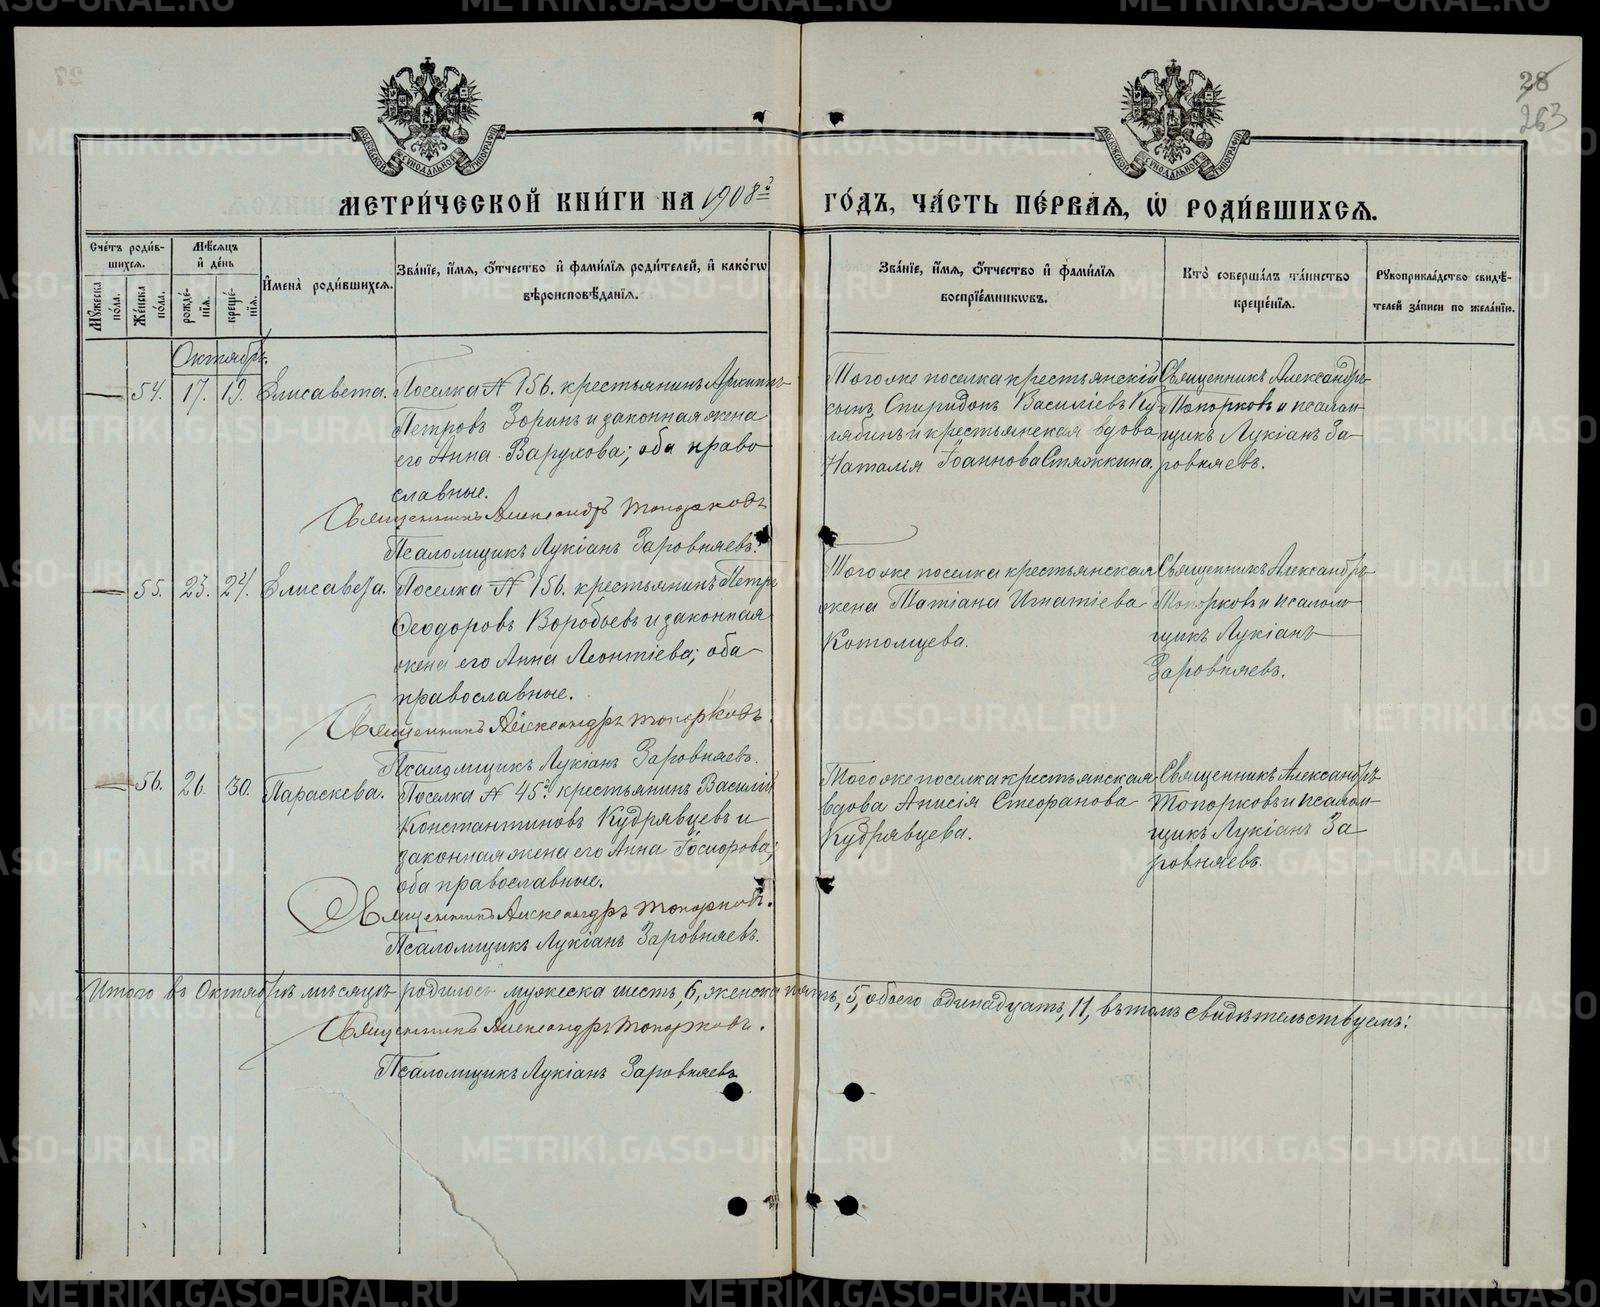 28
263
МЕТРИ́ЧЕСКОЙ КНИ́ГИ НА 1908й ГО́ДЪ, ЧА́СТЬ ПЕ́РВАЯ, Ѡ РОДИ́ВШИХСЯ.
Сче́тъ роди́вшихся.
Му́жеска по́ла.
Же́нска по́ла.
Мѣ́сяцъ и де́нь
рожде́нія.
креще́нія.
И́мена роди́вшихся.
Зва́ніе, и́мя, о́тчество и фами́лія роди́телей, и како́гѡ
вѣроисповѣ́данія.
Зва́ніе, и́мя, о́тчество и фами́лія
воспріе́мникѡвъ.
Кто̀ соверша́лъ та́инство
креще́нія.
Рукоприкла́дство свидѣ́-
телей за́писи по жела́нію.
Октябрь.
— 54. 17. 19. Елисавета.
Поселка № 156. крестьянинъ Архиппъ
Петровъ Зоринъ и законная жена
его Анна Варухова; оба право
славные.
Священникъ Александръ Топорковъ
Псаломщикъ Лукіанъ Заровняевъ.
Тогоже поселка крестьянскій
сынъ Спиридонъ Василіевъ Ку-
лябинъ и крестьянская вдова
Наталія Іоаннова Стяжкина.
Священникъ Александръ
Топорковъ и псалом-
щикъ Лукіанъ За-
ровняевъ.
— 55. 23. 24. Елисавета.
Поселка № 156. крестьянинъ Петръ
Феодоровъ Воробьевъ и законная
жена его Анна Леонтіева; оба
православные.
Священникъ Александръ Топорковъ.
Псаломщикъ Лукіанъ Заровняевъ.
Тогоже поселка крестьянская
жена Татіана Игнатіева
Котомцева.
Священникъ Александръ
Топорковъ и псалом
щикъ Лукіанъ
Заровняевъ.
— 56. 26. 30. Параскева.
Поселка № 45й крестьянинъ Василій
Константиновъ Кудрявцевъ и
законная жена его Анна
оба православные.
Священникъ Александръ Топорковъ.
Псаломщикъ Лукіанъ Заровняевъ.
Тогоже поселка крестьянская
вдова Анисія Стефанова
Кудрявцева.
Священникъ Александръ
Топорковъ и псалом-
щикъ Лукіанъ За
ровняевъ.
Итого въ Октябрѣ мѣсяцѣ родилось мужеска шесть, 6, женска пять, 5, обоего одинадцать, 11, въ томъ свидѣтельствуемъ:
Священникъ Александръ Топорковъ.
Псаломщикъ Лукіанъ Заровняевъ
METRIKI.GASO-URAL.RU